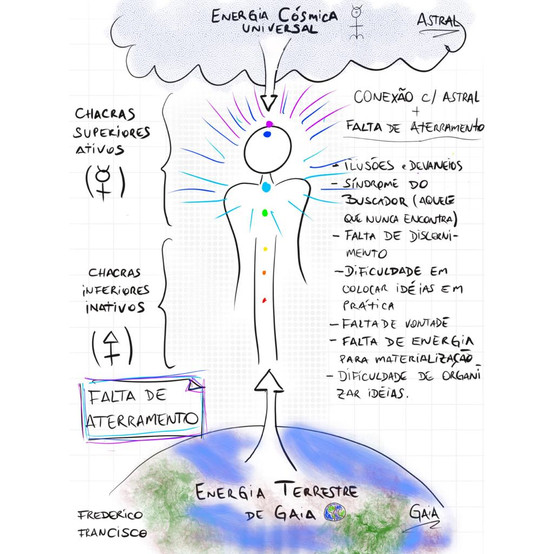 ENERGIA CÓSMICA
UNIVERSAL
ASTRAL
CHACRAS
SUPERIORES
ATIVOS
CONEXÃO C/ ASTRAL
+
FALTA DE ATERRAMENTO
- ILUSÕES e DEVANEIOS
- SÍNDROME DO
BUSCADOR (AQUELE
QUE NUNCA ENCONTRA)
- FALTA DE DISCERNI-
MENTO
- DIFICULDADE EM
COLOCAR IDÉIAS EM
PRÁTICA
- FALTA DE VONTADE
- FALTA DE ENERGIA
PARA MATERIALIZAÇÃO
- DIFICULDADE DE ORGANI
ZAR IDÉIAS.
CHACRAS
INFERIORES
INATIVOS
FALTA DE
ATERRAMENTO
ENERGIA TERRESTRE
DE GAIA
GAIA
FREDERICO
FRANCISCO